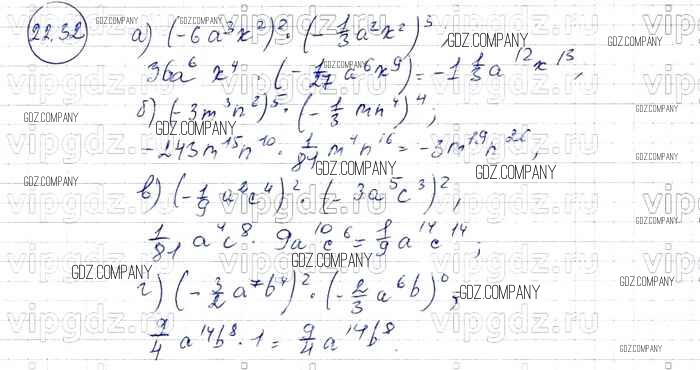 22.32
а) (-6a³x²)² · (-1/3 a²x²)³,
36a⁶x⁴ · (-1/27 a⁶x⁹) = -1 1/3 a¹²x¹³;
б) (-3m³n²)⁵ · (-1/3 mn⁴)⁴;
-243m¹⁵n¹⁰ · 1/81 m⁴n¹⁶ = -3m¹⁹n²⁶;
в) (-1/9 a²c⁴)² · (-3a⁵c³)²,
1/81 a⁴c⁸ · 9a¹⁰c⁶ = 1/9 a¹⁴c¹⁴;
г) (-3/2 a⁷b⁴)² · (-2/3 a⁶b)⁰;
9/4 a¹⁴b⁸ · 1 = 9/4 a¹⁴b⁸.
GDZ.COMPANY
vipgdz.ru